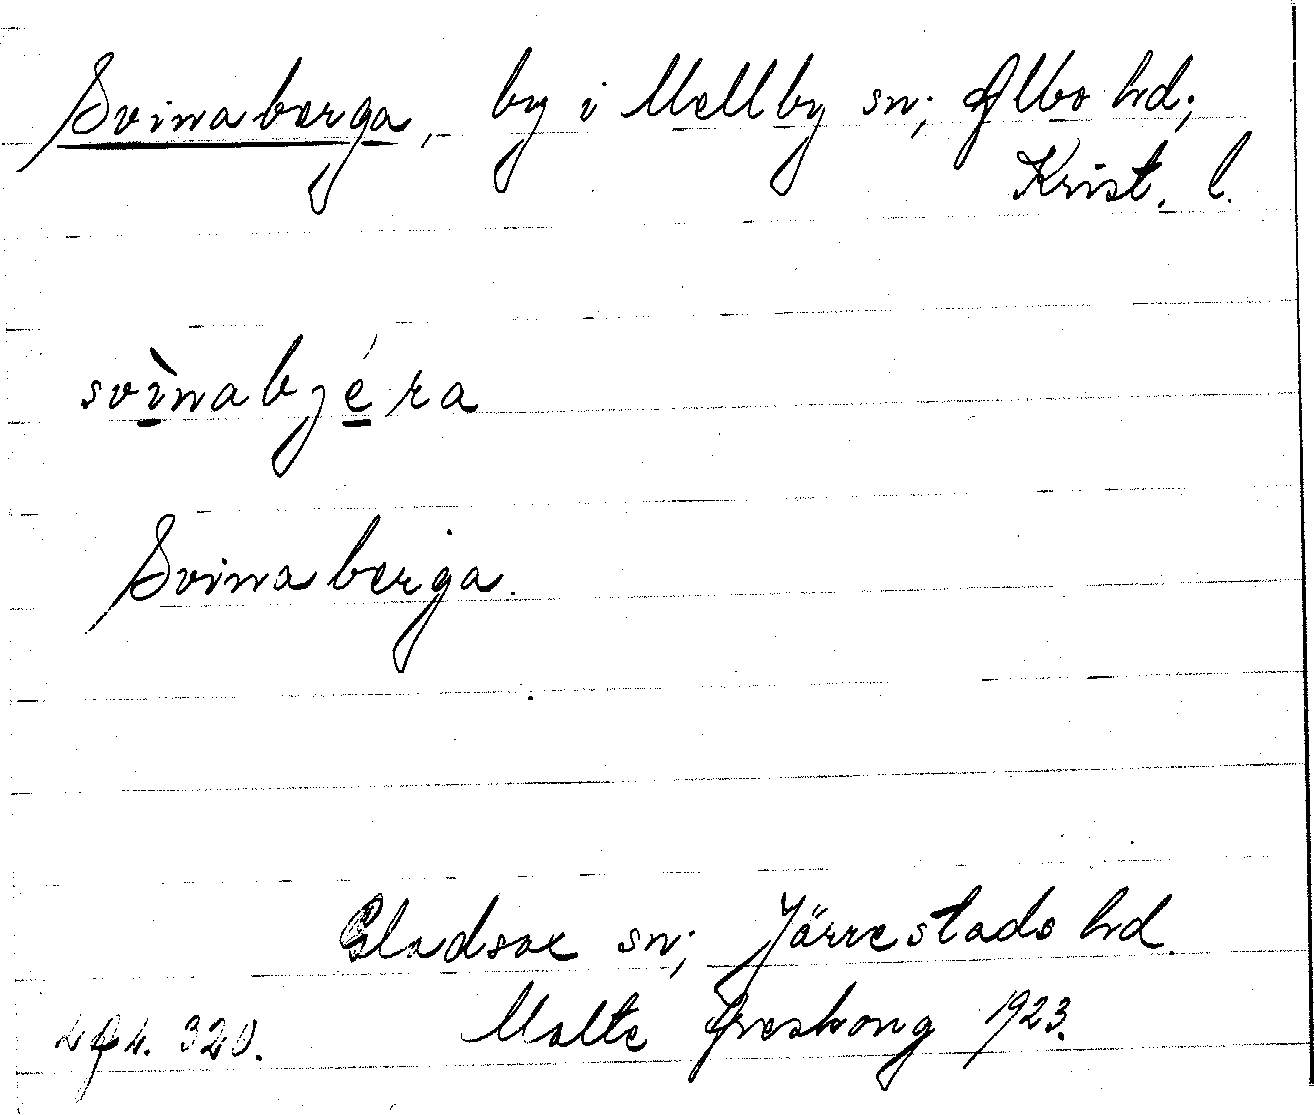 Svinaberga, by i Mellby sn; Albo hd;
Krist. l.
svìnabjéra
Svinaberga.
Gladsax sn; Järrestads hd.
Malte Areskoug 1923.
320.